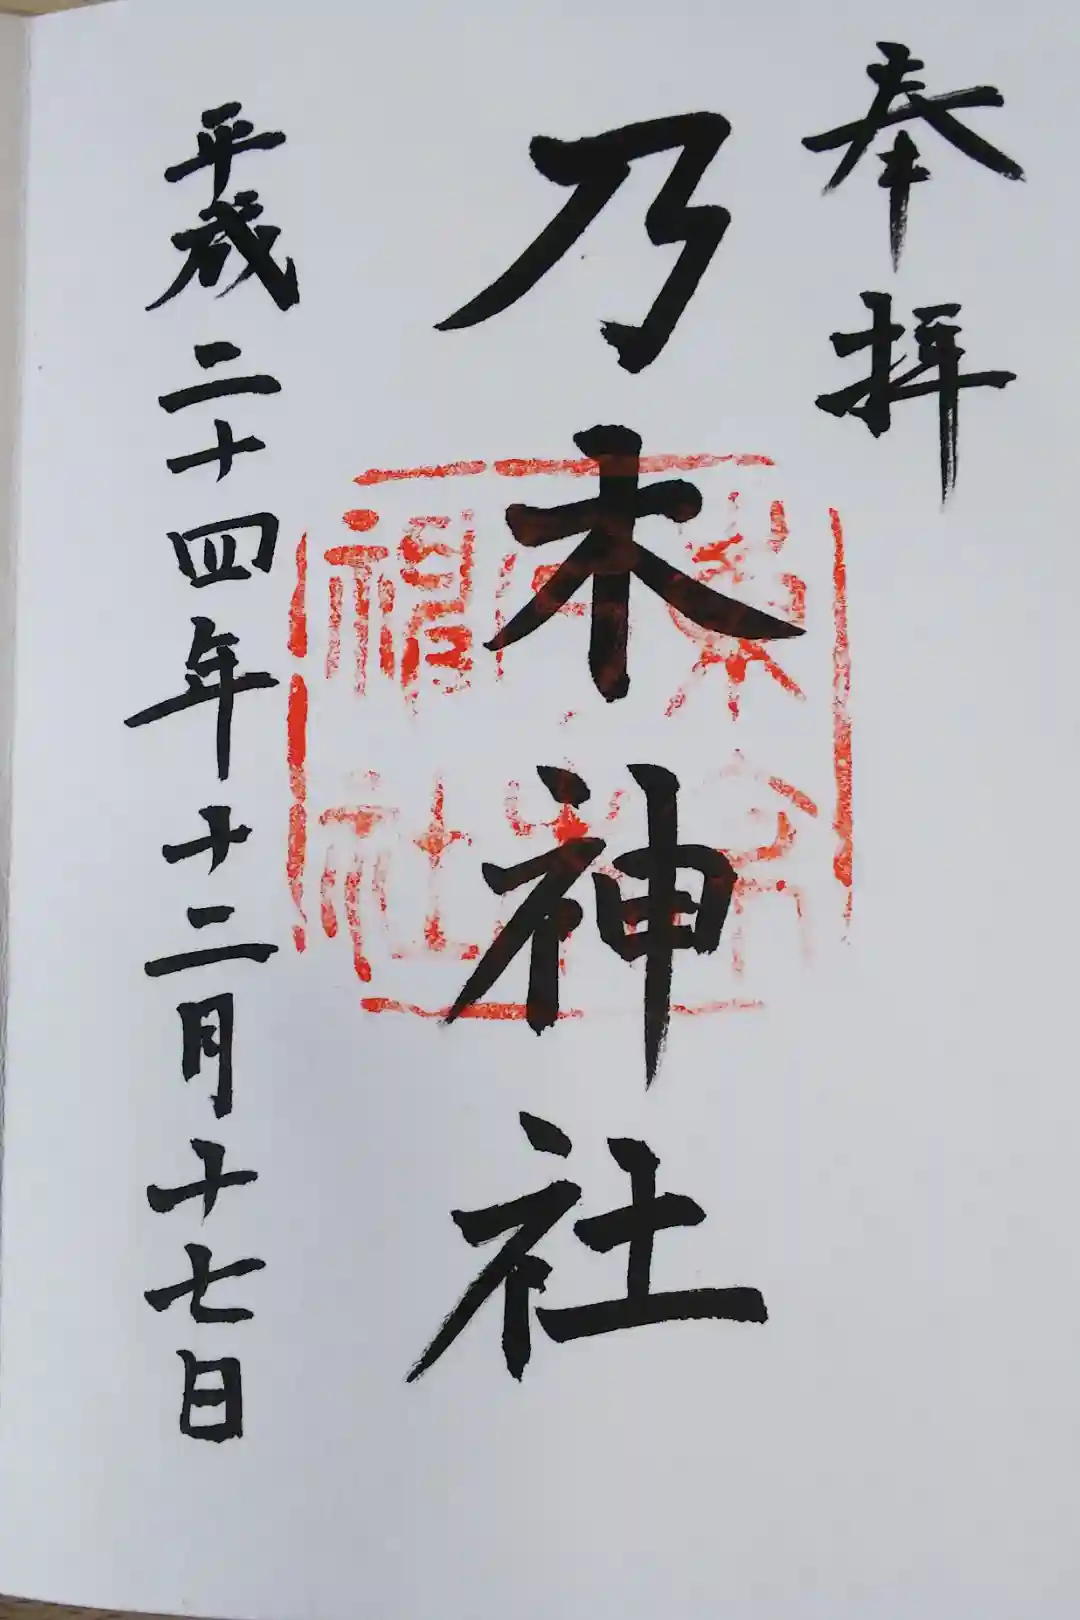 奉拝
乃木神社
平成二十四年十二月十七日